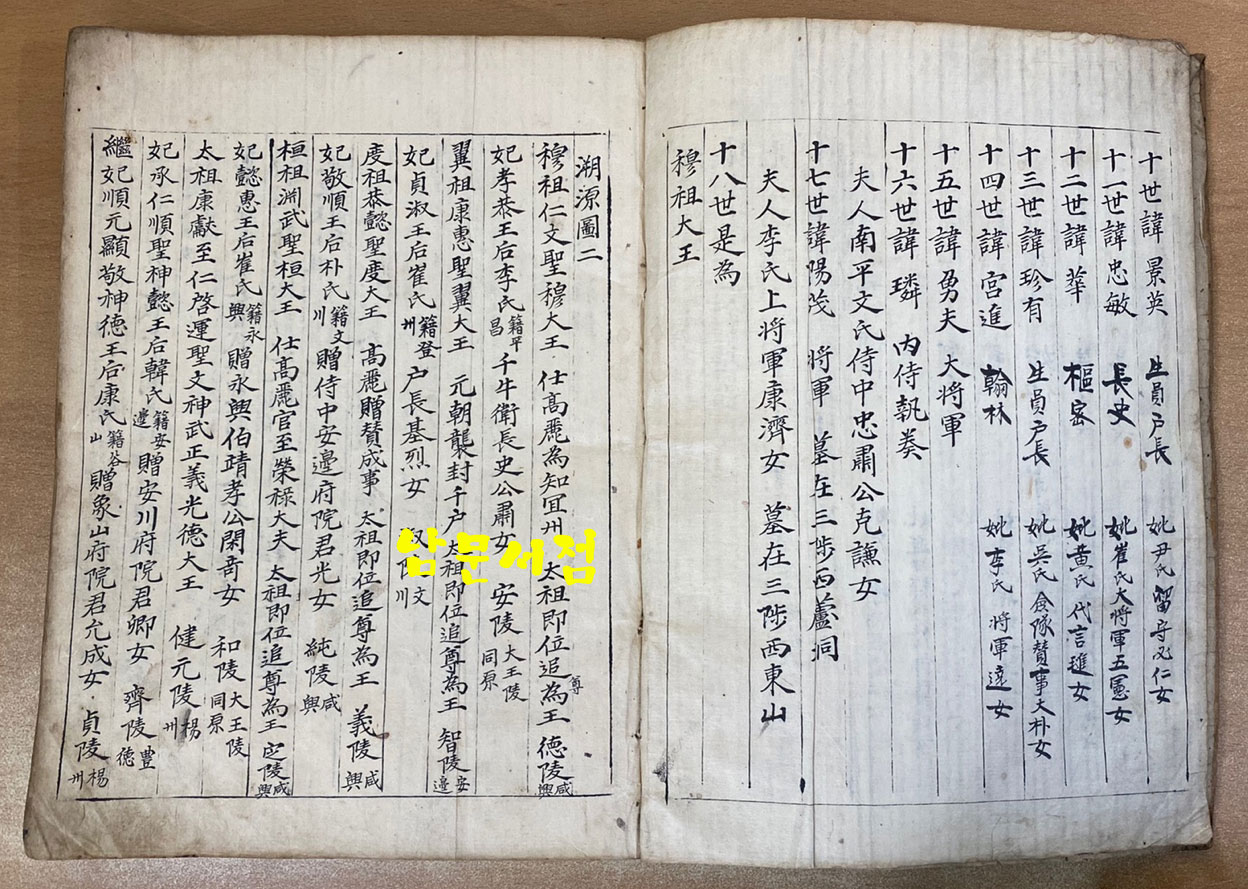 十世諱 景英 生員戶長 妣尹氏 留守 仁女
十一世諱忠敏 長史 妣崔氏大將軍五憲女
十二世諱 華 樞密 妣黃氏 代言進女
十三世諱珍有 生員戶長 妣吳氏 僉隊贊事大朴女
十四世諱宮進 翰林 妣李氏 將軍遠女
十五世諱勇夫 大將軍
十六世諱 璘 內侍執奏
夫人南平文氏侍中忠肅公克謙女
十七世諱陽茂 將軍 墓在三陟西蘆洞
夫人李氏上將軍康濟女 墓在三陟西東山
十八世是為
穆祖大王
溯源圖二
穆祖仁文聖穆大王 仕高麗為知冝州 太祖即位追尊為王 德陵咸興
妃孝恭王后李氏籍平昌 千牛衛長史公肅女 安陵大王陵同原
翼祖康惠聖翼大王 元朝襲封千户 太祖即位追尊為王 智陵安邊
妃貞淑王后崔氏籍登州 户長基烈女 陵文川
度祖恭懿聖度大王 高麗贈贊成事 太祖即位追尊為王 義陵咸興
妃敬順王后朴氏籍文川 贈侍中安邊府院君光女 純陵咸興
桓祖淵武聖桓大王 仕高麗官至榮祿大夫 太祖即位追尊為王 定陵咸興
妃懿惠王后崔氏籍永興 贈永興伯靖孝公閑奇女 和陵大王陵同原
太祖康獻至仁啓運聖文神武正義光德大王 健元陵楊州
妃承仁順聖神懿王后韓氏籍安邊 贈安川府院君卿女 齊陵豊德
繼妃順元顯敬神德王后康氏籍谷山 贈象山府院君允成女 貞陵楊州
남문서점